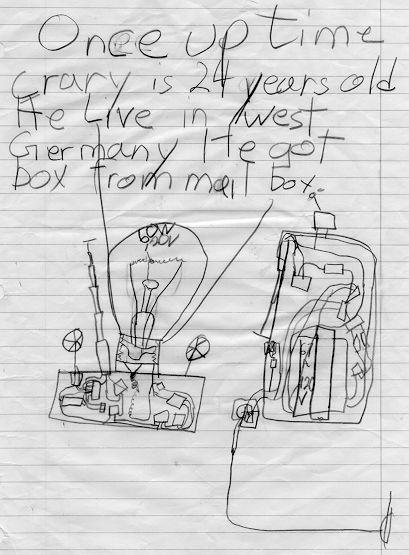 Once up time
crary is 24 years old
He Live in west
Germany He got
box from mail box.
60W